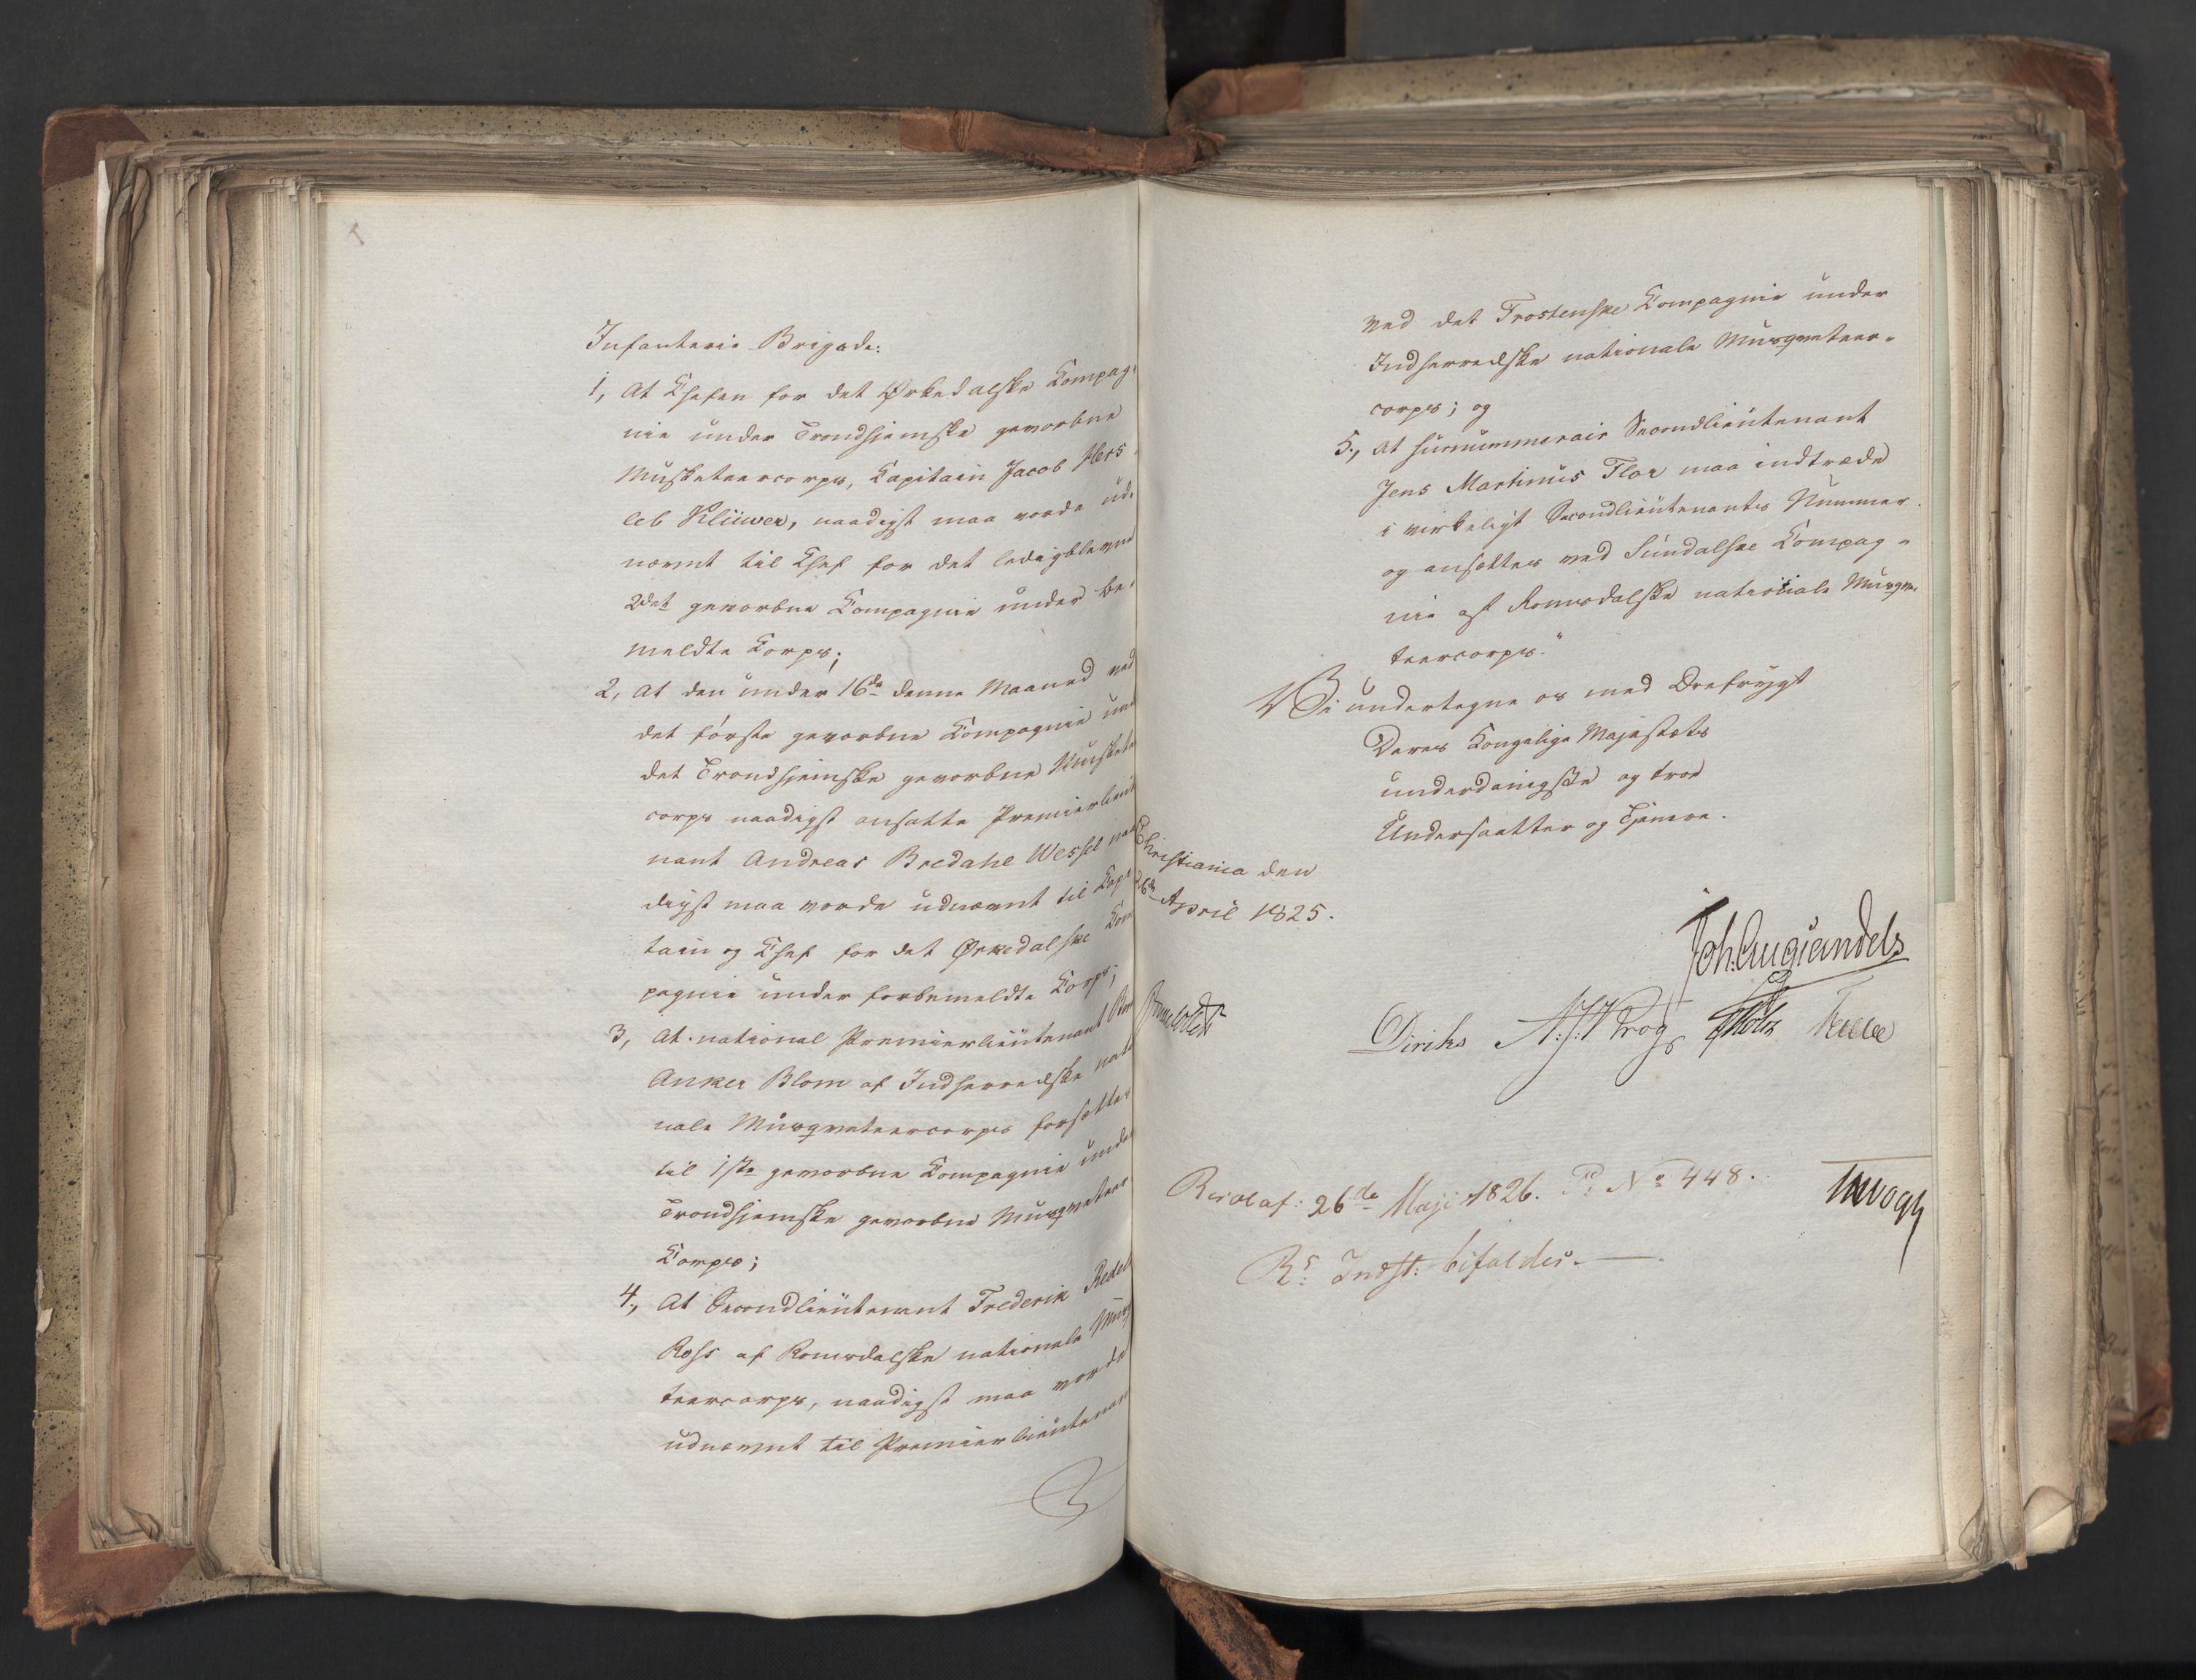 Infanterie Brigade:
1, At Chefen for det Ørkedalske Compag-
nie under Trondhjemske gevorbne
Musketeercorps, Capitain Jacob Hers
leb Klüwer, naadigst maa vorde ud-
nævnt til Chef for det ledigblevne
2det gevorbne Compagnie under be-
meldte Corps;
2, At den under 16de denne Maaned ved
det første gevorbne Compagnie
det Trondhjemske gevorbne
corps naadigst ansatte
nant Andreas Bredahl Wessel
digst maa vorde udnævnt til
tain og Chef for det Ørkedalske
pagnie under forbemeldte Corps;
3, At national Premierlieutenant
Anker Blom af Indherredske
nale Musqveteercorps forsættes
til 1ste gevorbne Compagnie under
Trondhjemske gevorbne
Corps;
4, At Secondlieutenant Frederik
Ross af Romsdalske nationale
teercorps, naadigst maa vorde
udnævnt til
ved det Frostenske Compagnie under
Indherredske nationale Musqveteer-
corps; og
5, At surnummerair Secondlieutenant
Jens Martinus Flor maa indtræde
i virkeligt Secondlieutenants Nummer
og ansættes ved Sundalske Compag-
nie af Romsdalske nationale Musqve-
teercorps."
Vi undertegne os med Ærefrygt
Deres Kongelige Majestæts
underdanigste og troe
Undersaatter og Tjenere.
Christiania den
26de April 1825.
Joh: Aug: Sandels
Diriks Krog Holst
Resol af: 26de Maji 1826. No 448.
Rs: Indst: bifaldes.
Vogt